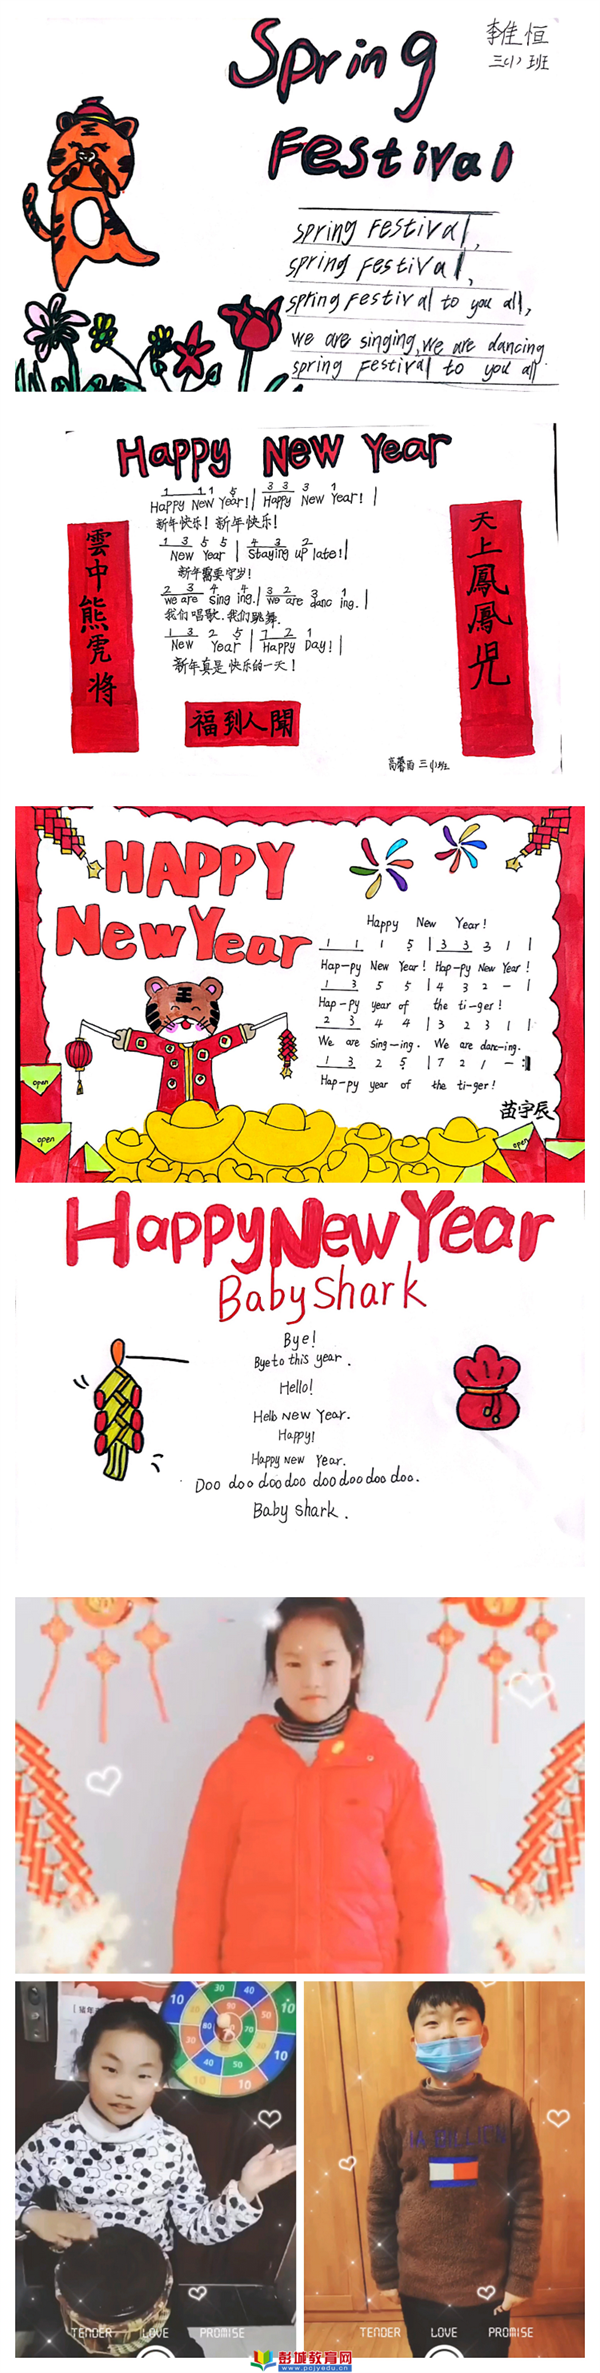 Spring
李佳恒
三(1)班
Festival
Spring Festival,
spring Festival,
spring Festival to you all,
we are singing, we are dancing
spring Festival to you all.
HAPPY NEW Year
1 1 1 5 | 3 3 3 1
Happy New Year! | Happy New Year! |
新年快乐! 新年快乐!
1 3 5 5 | 4 3 2
New Year | staying up late! |
新年需要守岁!
2 3 4 4 | 3 2 3 1
we are sing ing. | we are danc ing. |
我们唱歌.我们跳舞.
1 3 2 5 | 7 2 1
New Year | Happy Day! |
新年真是快乐的一天!
雲中熊虎将
天上鳳鳳兒
福到人間
高馨雨 三(1)班
HAPPY
New Year
Happy New Year!
1 1 1 5 | 3 3 3 1 |
Hap-py New Year! Hap-py New Year!
1 3 5 5 | 4 3 2 - |
Hap-py year of the ti-ger!
2 3 4 4 | 3 2 3 1 |
We are sing-ing. We are danc-ing.
1 3 2 5 | 7 2 1 - :|
Hap-py year of the ti-ger!
苗宇辰
open
open
open
open
Happy New Year
Baby Shark
Bye!
Bye to this year.
Hello!
Hello New Year.
Happy!
Happy New Year.
Doo doo doo doo doo doo doo doo.
Baby shark.
10
TENDER LOVE PROMISE
TENDER LOVE PROMISE
彭城教育网
www.pcjyedu.cn